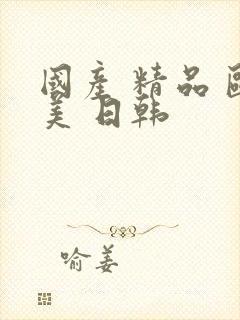 國産精品歐
美日韩
喻姜